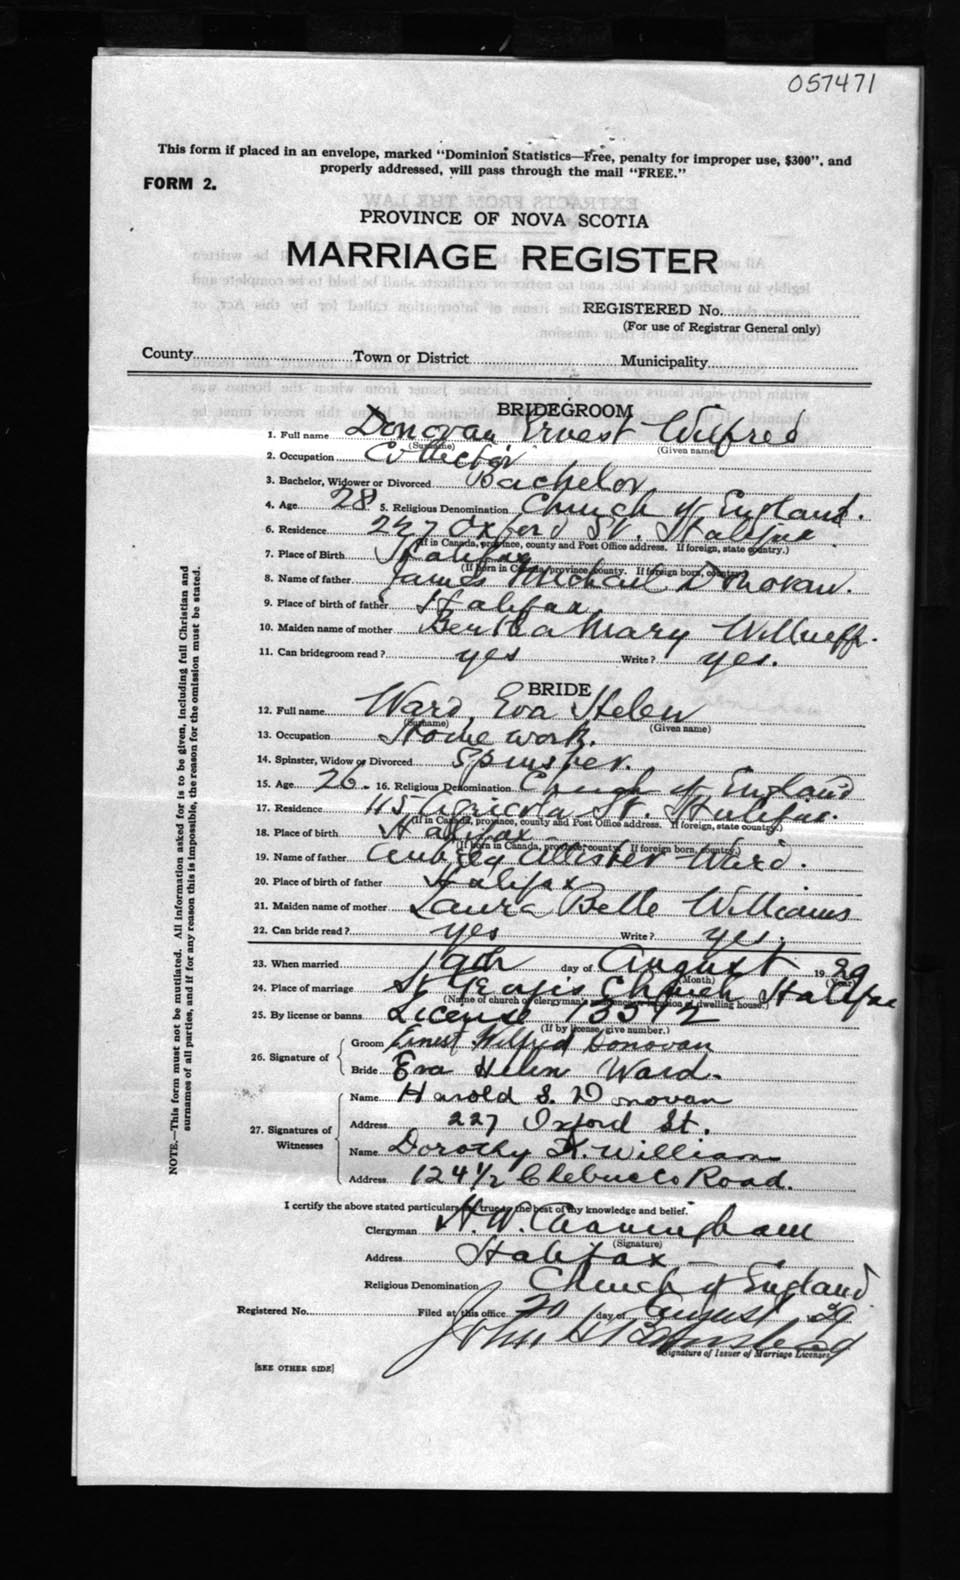 057471
This form if placed in an envelope, marked "Dominion Statistics—Free, penalty for improper use, $300", and
properly addressed, will pass through the mail "FREE."
FORM 2.
PROVINCE OF NOVA SCOTIA
MARRIAGE REGISTER
REGISTERED No.
(For use of Registrar General only)
County Town or District Municipality
BRIDEGROOM
1. Full name Donovan, Ernest Wilfred
(Surname) (Given name)
2. Occupation Collector
3. Bachelor, Widower or Divorced Bachelor
4. Age 28 5. Religious Denomination Church of England.
6. Residence 227 Oxford St. Halifax
(If in Canada, province, county and Post Office address. If foreign, state country.)
7. Place of Birth Halifax
(If born in Canada, province, county. If foreign born, country.)
8. Name of father James Michael Donovan.
9. Place of birth of father Halifax
10. Maiden name of mother Bertha Mary
11. Can bridegroom read? yes Write? yes.
BRIDE
12. Full name Ward, Eva Helen
(Surname) (Given name)
13. Occupation Home work.
14. Spinster, Widow or Divorced Spinster.
15. Age 26. 16. Religious Denomination Church of England
17. Residence 115 Agricola St. Halifax.
(If in Canada, province, county and Post Office address. If foreign, state country.)
18. Place of birth Halifax
(If born in Canada, province, county. If foreign born, country.)
19. Name of father Aubrey Allister Ward.
20. Place of birth of father Halifax
21. Maiden name of mother Laura Belle Williams
22. Can bride read? yes Write? yes.
23. When married 19th day of August 1929
(Month) (Year)
24. Place of marriage St Georges Church Halifax
(Name of church or clergyman's residence or location of dwelling house.)
25. By license or banns License 13512
(If by license, give number.)
26. Signature of
Groom Ernest Wilfred Donovan
Bride Eva Helen Ward.
27. Signatures of Witnesses
Name Harold S. Donovan
Address 227 Oxford St.
Name Dorothy K. Williams
Address 124 1/2 Chebucto Road.
I certify the above stated particulars are true to the best of my knowledge and belief.
Clergyman H. W. Cunningham
(Signature)
Address Halifax
Religious Denomination Church of England
Registered No. Filed at this office 20 day of August 29
John
Signature of Issuer of Marriage Licenses
[SEE OTHER SIDE]
NOTE.—This form must not be mutilated. All information asked for is to be given, including full Christian and
surnames of all parties, and if for any reason this is impossible, the reason for the omission must be stated.